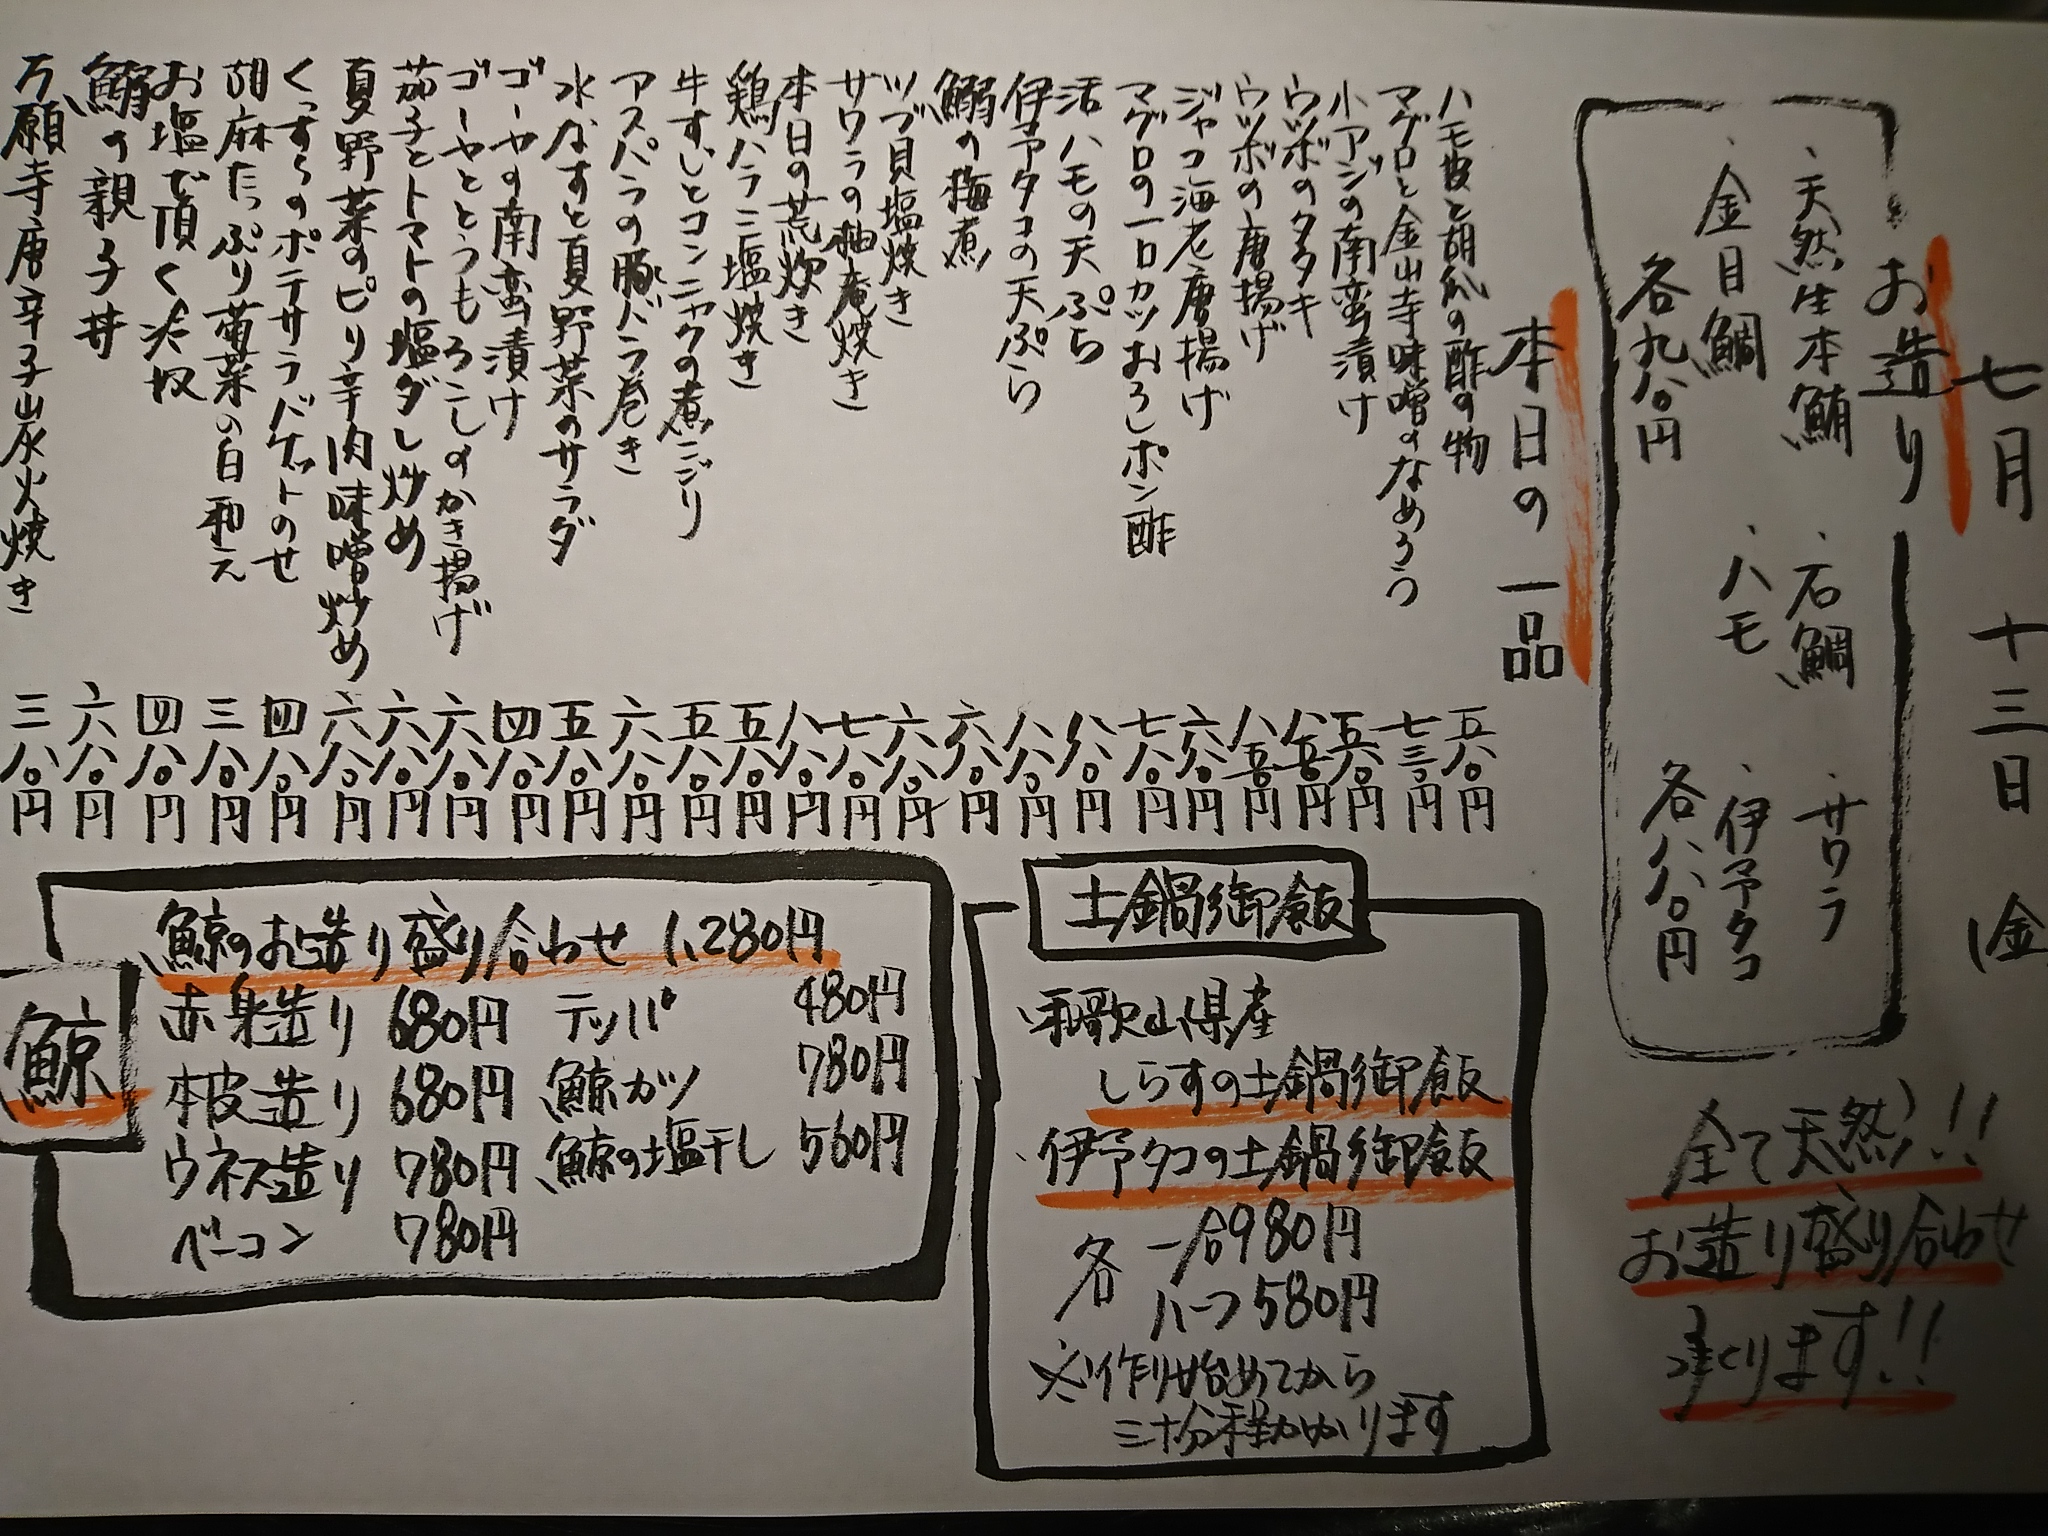 七月十三日(金)
お造り
・天然生本鮪 ・石鯛 ・サワラ
・金目鯛 ・ハモ ・伊予タコ
各九八〇円 各八八〇円
全て天然!!
お造り盛り合わせ
承ります!!
本日の一品
ハモ皮と胡瓜の酢の物 五八〇円
マグロと金山寺味噌のなめろう 七三〇円
小アジの南蛮漬け 五六〇円
ウツボのタタキ 八五〇円
ウツボの唐揚げ 八五〇円
ジャコ海老唐揚げ 六八〇円
マグロの一口カツおろしポン酢 七八〇円
活ハモの天ぷら 八八〇円
伊予タコの天ぷら 八八〇円
鰯の梅煮 六八〇円
ツブ貝塩焼き 六八〇円
サワラの柚庵焼き 七八〇円
本日の荒炊き 八八〇円
鶏ハラミ塩焼き 五八〇円
牛すじとコンニャクの煮こごり 五八〇円
アスパラの豚バラ巻き 六八〇円
水なすと夏野菜のサラダ 五八〇円
ゴーヤの南蛮漬け 四八〇円
ゴーヤととうもろこしのかき揚げ 六八〇円
茄子とトマトの塩ダレ炒め 六八〇円
夏野菜のピリ辛肉味噌炒め 六八〇円
のポテサラバゲットのせ 四八〇円
胡麻たっぷり菊菜の白和え 三八〇円
お塩で頂く冷奴 四八〇円
の親子丼 六八〇円
万願寺唐辛子炭火焼き 三八〇円
土鍋御飯
・和歌山県産
しらすの土鍋御飯
・伊予タコの土鍋御飯
各 一合980円
ハーフ580円
※作り始めてから
三十分程かかります
鯨
鯨のお造り盛り合わせ 1,280円
赤身造り 680円 テッパ 480円
本皮造り 680円 鯨カツ 780円
ウネス造り 780円 鯨の塩干し 560円
ベーコン 780円